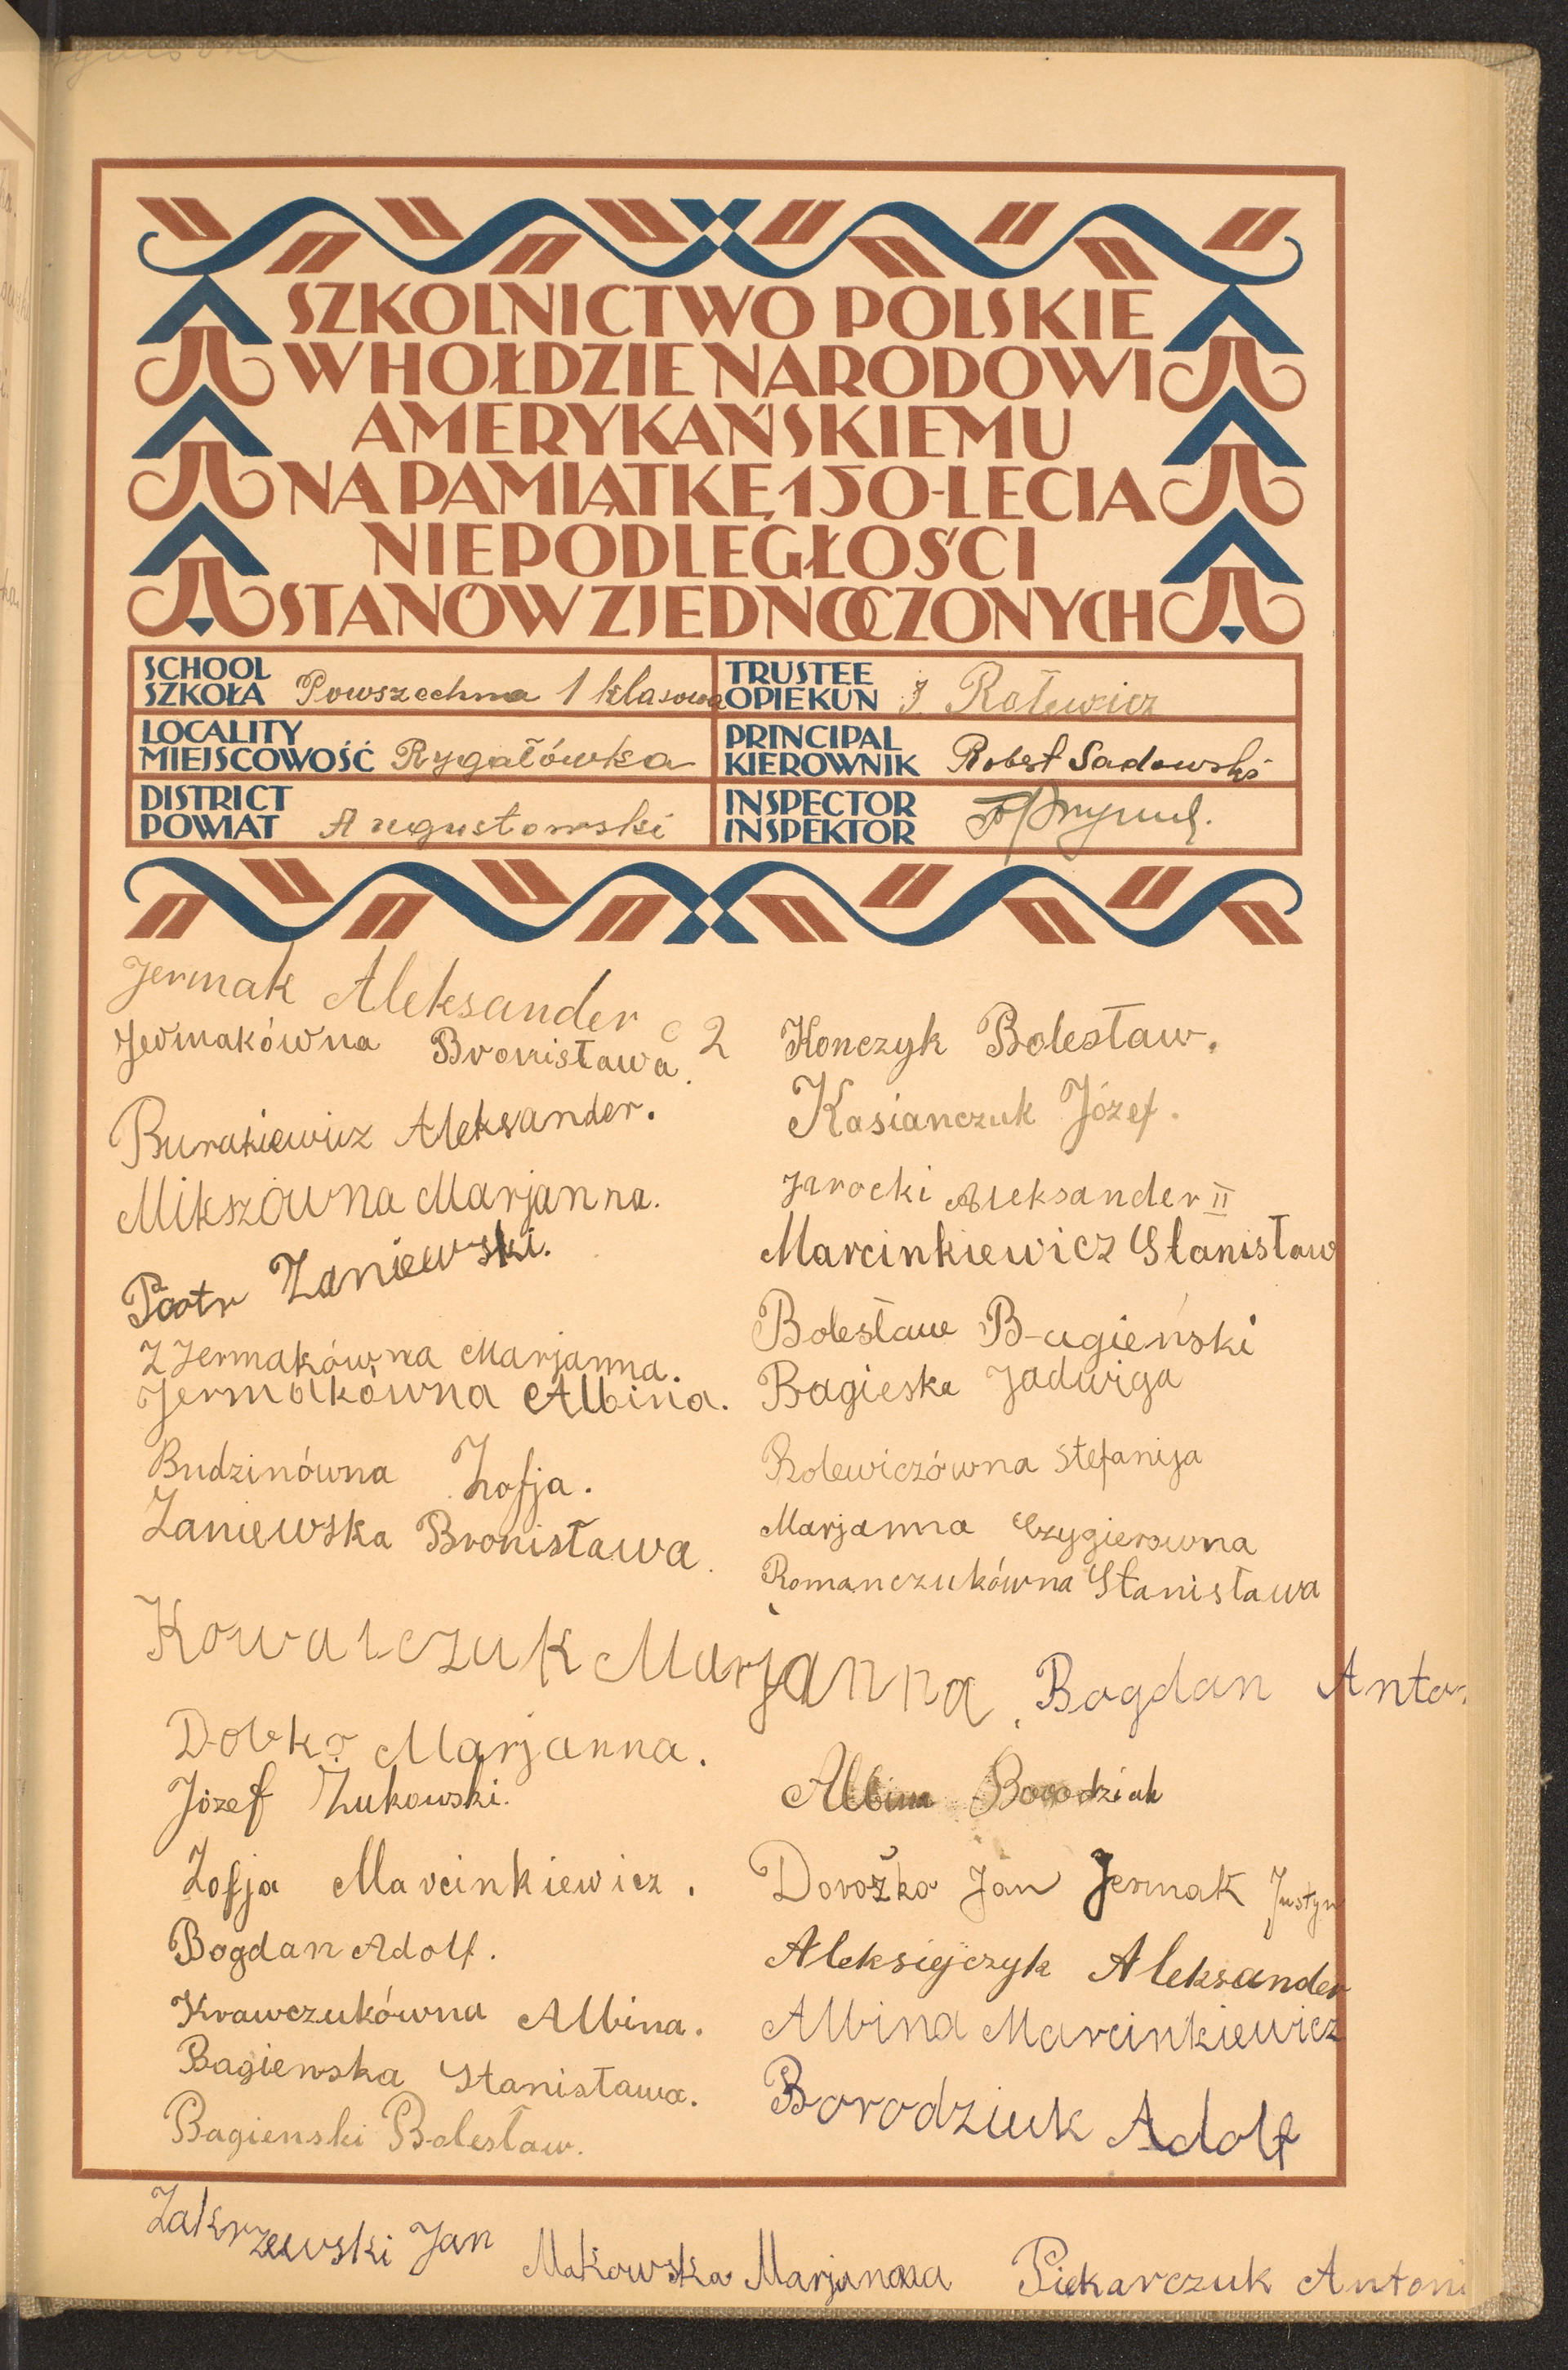 SZKOLNICTWO POLSKIE
W HOŁDZIE NARODOWI
AMERYKAŃSKIEMU
NA PAMIĄTKĘ 150-LECIA
NIEPODLEGŁOŚCI
STANÓW ZJEDNOCZONYCH
SCHOOL
SZKOŁA Powszechna 1 klasowa
TRUSTEE
OPIEKUN J Rolewicz
LOCALITY
MIEJSCOWOŚĆ Rygałówka
PRINCIPAL
KIEROWNIK Robert Sadowski
DISTRICT
POWIAT Augustowski
INSPECTOR
INSPEKTOR
Jermak Aleksander
Jermakówna Bronisława. 2
Burakiewicz Aleksander.
Mikszówna Marjanna.
Piotr Zaniewski.
2 Jermakówna Marjanna.
Jermakówna Albina.
Budzinówna Zofja.
Zaniewska Bronisława.
Kowalczuk Marjanna
Dobko Marjanna.
Józef Żukowski.
Zofja Marcinkiewicz.
Bogdan Adolf.
Krawczukówna Albina.
Bagienska Stanisława.
Bagienski Bolesław.
Konczyk Bolesław.
Kasianczuk Józef.
Jarocki Aleksander II
Marcinkiewicz Stanisław
Bolesław Bagieński
Bagieska Jadwiga
Rolewiczówna Stefanija
Marjanna Czygierowna
Romanczukówna Stanisława
Bogdan Anto
Albina Borodziuk
Dorożko Jan Jermak Justyn
Aleksiejczyk Aleksander
Albina Marcinkiewicz
Borodziuk Adolf
Zakrzewski Jan
Makowska Marjanna
Piekarczuk Antoni